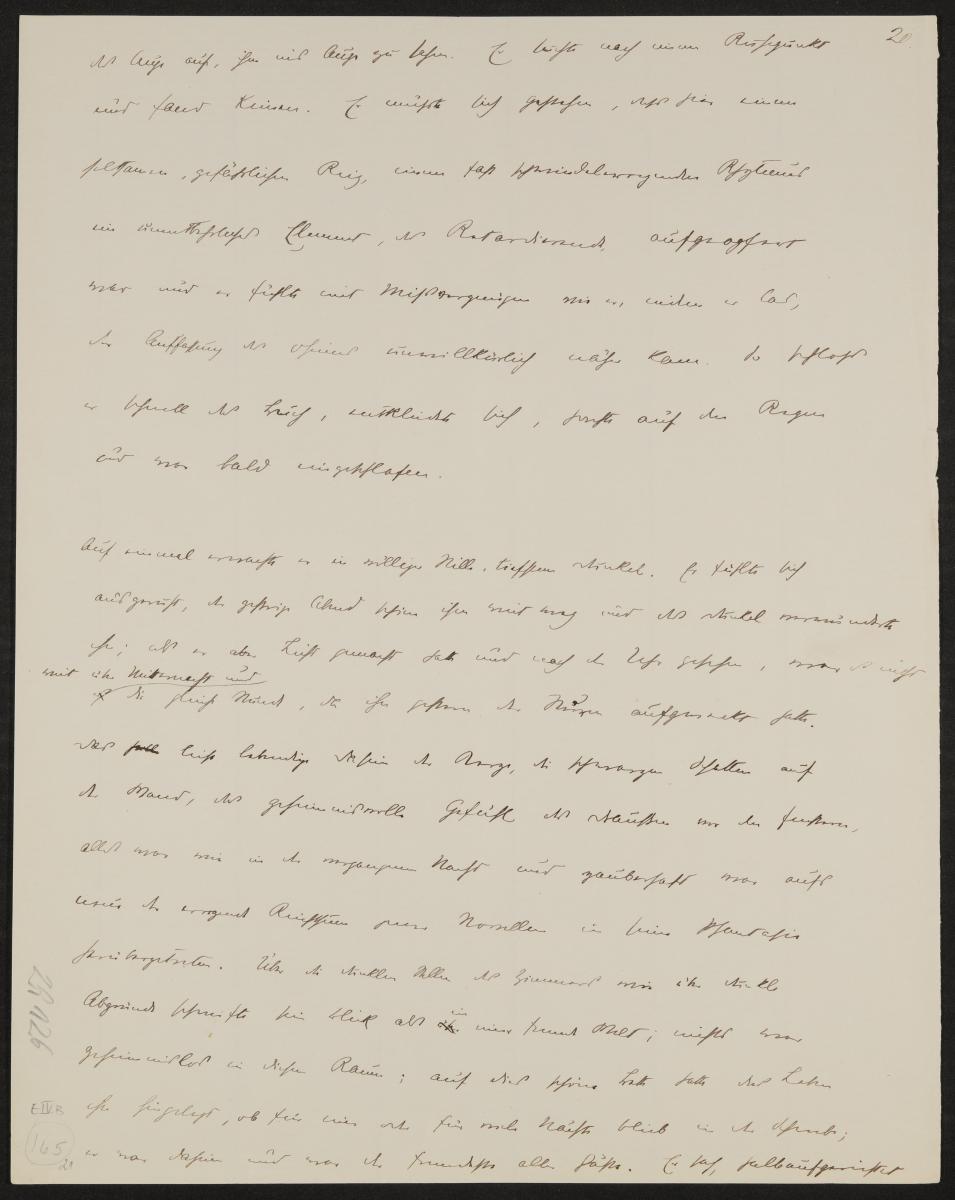 20.
das Auge auf, ihm ins Auge zu sehen. Er suchte nach einem Ruhepunkt
und fand keinen. Er mußte sich gestehen, daß hier einem
seltsamen, gefährlichen Reiz, einem fast schwindelerregenden Rhythmus
ein unentbehrliches Element, das Retardierende, aufgeopfert
war und er fühlte mit Mißvergnügen wie er, indem er las,
der Auffassung des unwillkürlich näher kam. So schloß
er schnell das Buch, entkleidete sich, horchte auf den Regen
und war bald eingeschlafen.
Auf einmal erwachte er in völliger Stille, tiefstem Dunkel. Er fühlte sich
ausgeruht, der gestrige Abend schien ihm weit weg und das Dunkel verwunderte
ihn; als er aber Licht gemacht hatte und nach der Uhr gesehen, war es nicht
weit über Mitternacht und
die gleiche Stunde, da ihn gestern der aufgeweckt hatte.
Das leise lebendige Dasein der Kerze, die schwarzen Schatten auf
der Wand, das geheimnisvolle Gefühl des Draußen vor den Fenstern,
alles war wie in der vergangenen Nacht und zauberhaft war aufs
neue der erregende Reichthum jener Novellen in seine Phantasie
herübergetreten. Über die dunklen Stellen des Zimmers wie über dunkle
Abgründe schweifte sein Blick als in einer fremden Welt; nichts war
geheimnislos in diesem Raum; auf dies schöne Bett hatte das Leben
ihn hingelegt, ob für eine oder für viele Nächte blieb in der Schwebe;
er war daheim und war der fremdeste aller Gäste. Er saß, halbaufgerichtet
E IV.B
165
20